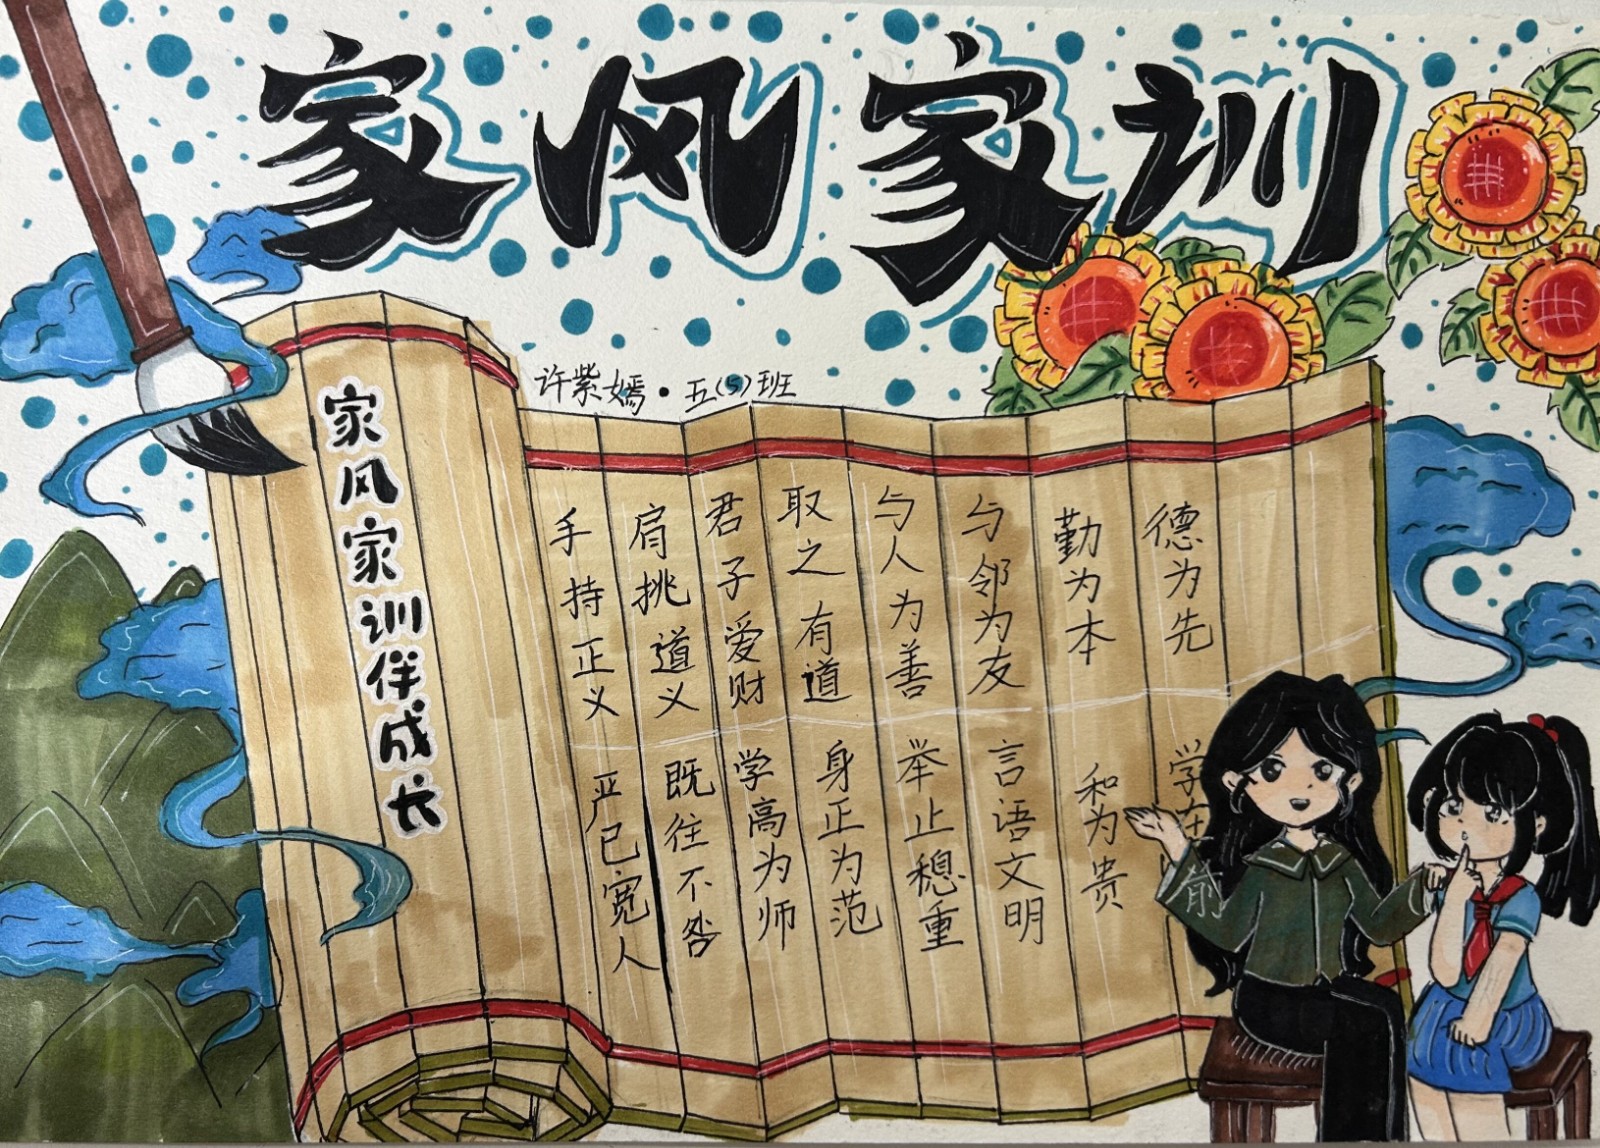 家风家训
许紫嫣·五(5)班
家风家训伴成长
德为先 学在前
勤为本 和为贵
与邻为友 言语文明
与人为善 举止稳重
取之有道 身正为范
君子爱财 学高为师
肩挑道义 既往不咎
手持正义 严已宽人